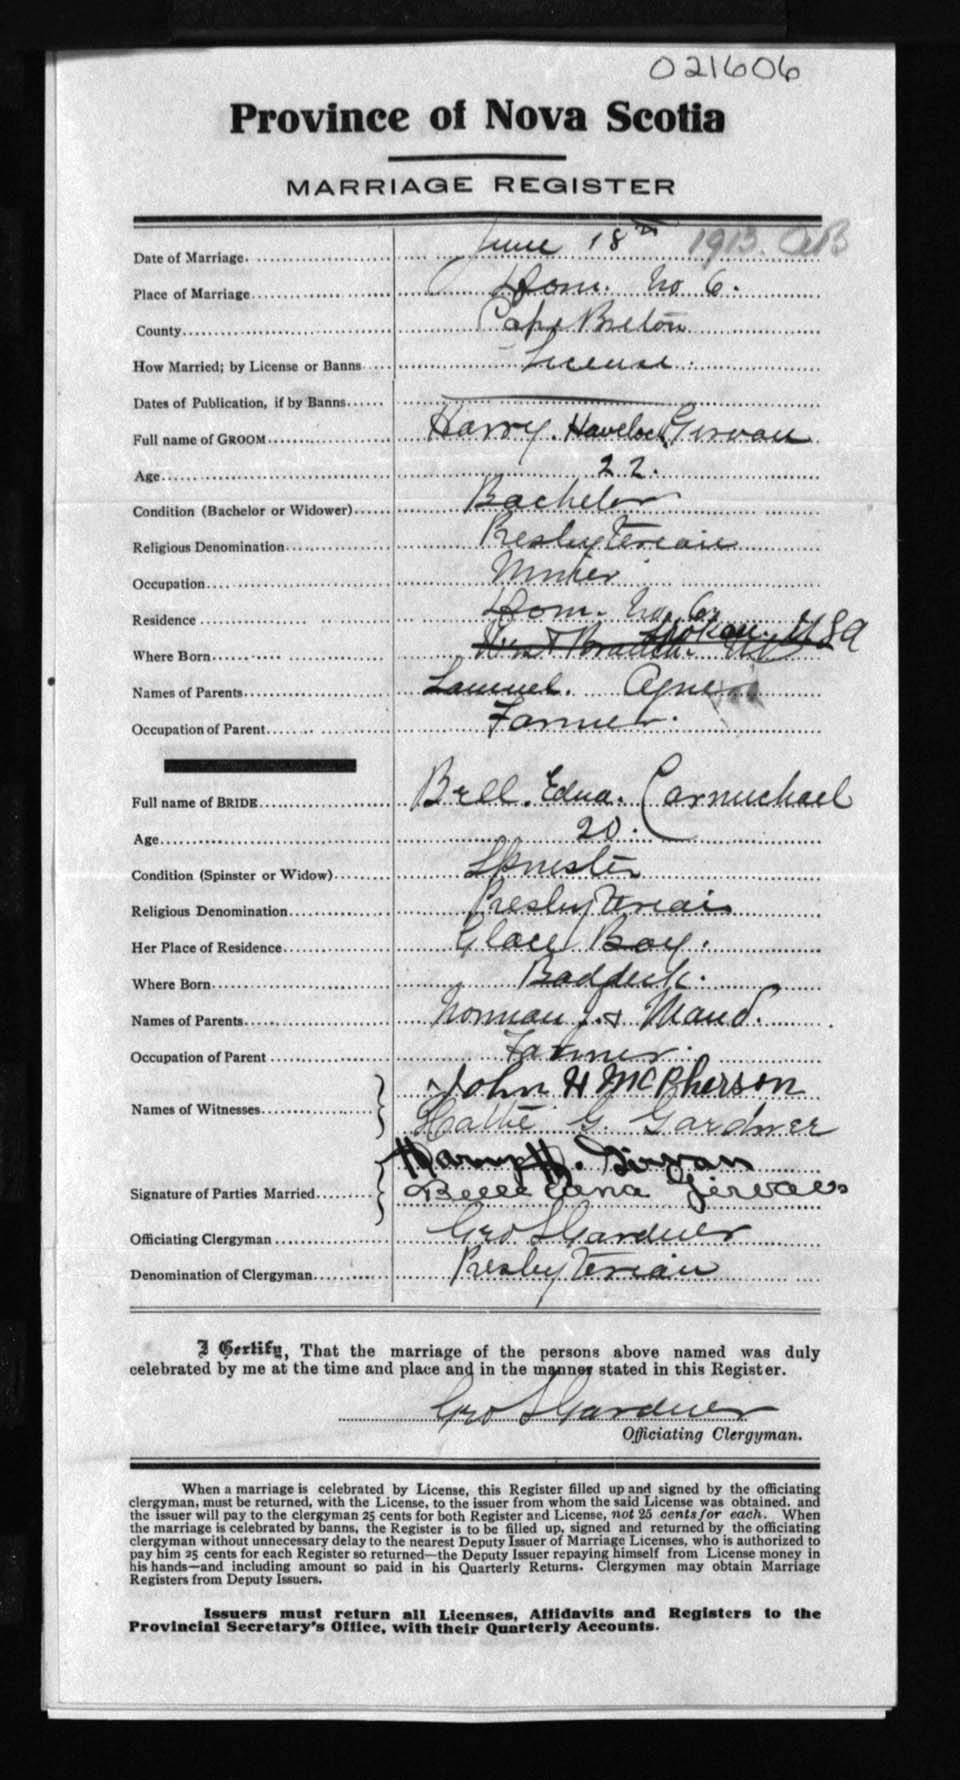 021606
Province of Nova Scotia
MARRIAGE REGISTER
Date of Marriage. June 18th 1913.
Place of Marriage Dom. No 6.
County Cape Breton
How Married; by License or Banns License
Dates of Publication, if by Banns
Full name of GROOM Harry. Havelock Girvan
Age 22.
Condition (Bachelor or Widower) Bachelor
Religious Denomination Presbyterian
Occupation Miner
Residence Dom. No. 6
Where Born Spokan. USA
Names of Parents Samuel. Agnes
Occupation of Parent Farmer.
Full name of BRIDE Bell. Edna. Carmichael
Age 20.
Condition (Spinster or Widow) Spinster
Religious Denomination Presbyterian
Her Place of Residence Glace Bay.
Where Born Baddeck.
Names of Parents Norman J. & Maud.
Occupation of Parent Farmer.
Names of Witnesses John H McPherson
Hattie G. Gardner
Harry H. Girvan
Signature of Parties Married Belle Edna Girvan
Officiating Clergyman Geo S Gardner
Denomination of Clergyman Presbyterian
I Certify, That the marriage of the persons above named was duly
celebrated by me at the time and place and in the manner stated in this Register.
Geo S Gardner
Officiating Clergyman.
When a marriage is celebrated by License, this Register filled up and signed by the officiating
clergyman, must be returned, with the License, to the issuer from whom the said License was obtained, and
the issuer will pay to the clergyman 25 cents for both Register and License, not 25 cents for each. When
the marriage is celebrated by banns, the Register is to be filled up, signed and returned by the officiating
clergyman without unnecessary delay to the nearest Deputy Issuer of Marriage Licenses, who is authorized to
pay him 25 cents for each Register so returned—the Deputy Issuer repaying himself from License money in
his hands—and including amount so paid in his Quarterly Returns. Clergymen may obtain Marriage
Registers from Deputy Issuers.
Issuers must return all Licenses, Affidavits and Registers to the
Provincial Secretary's Office, with their Quarterly Accounts.